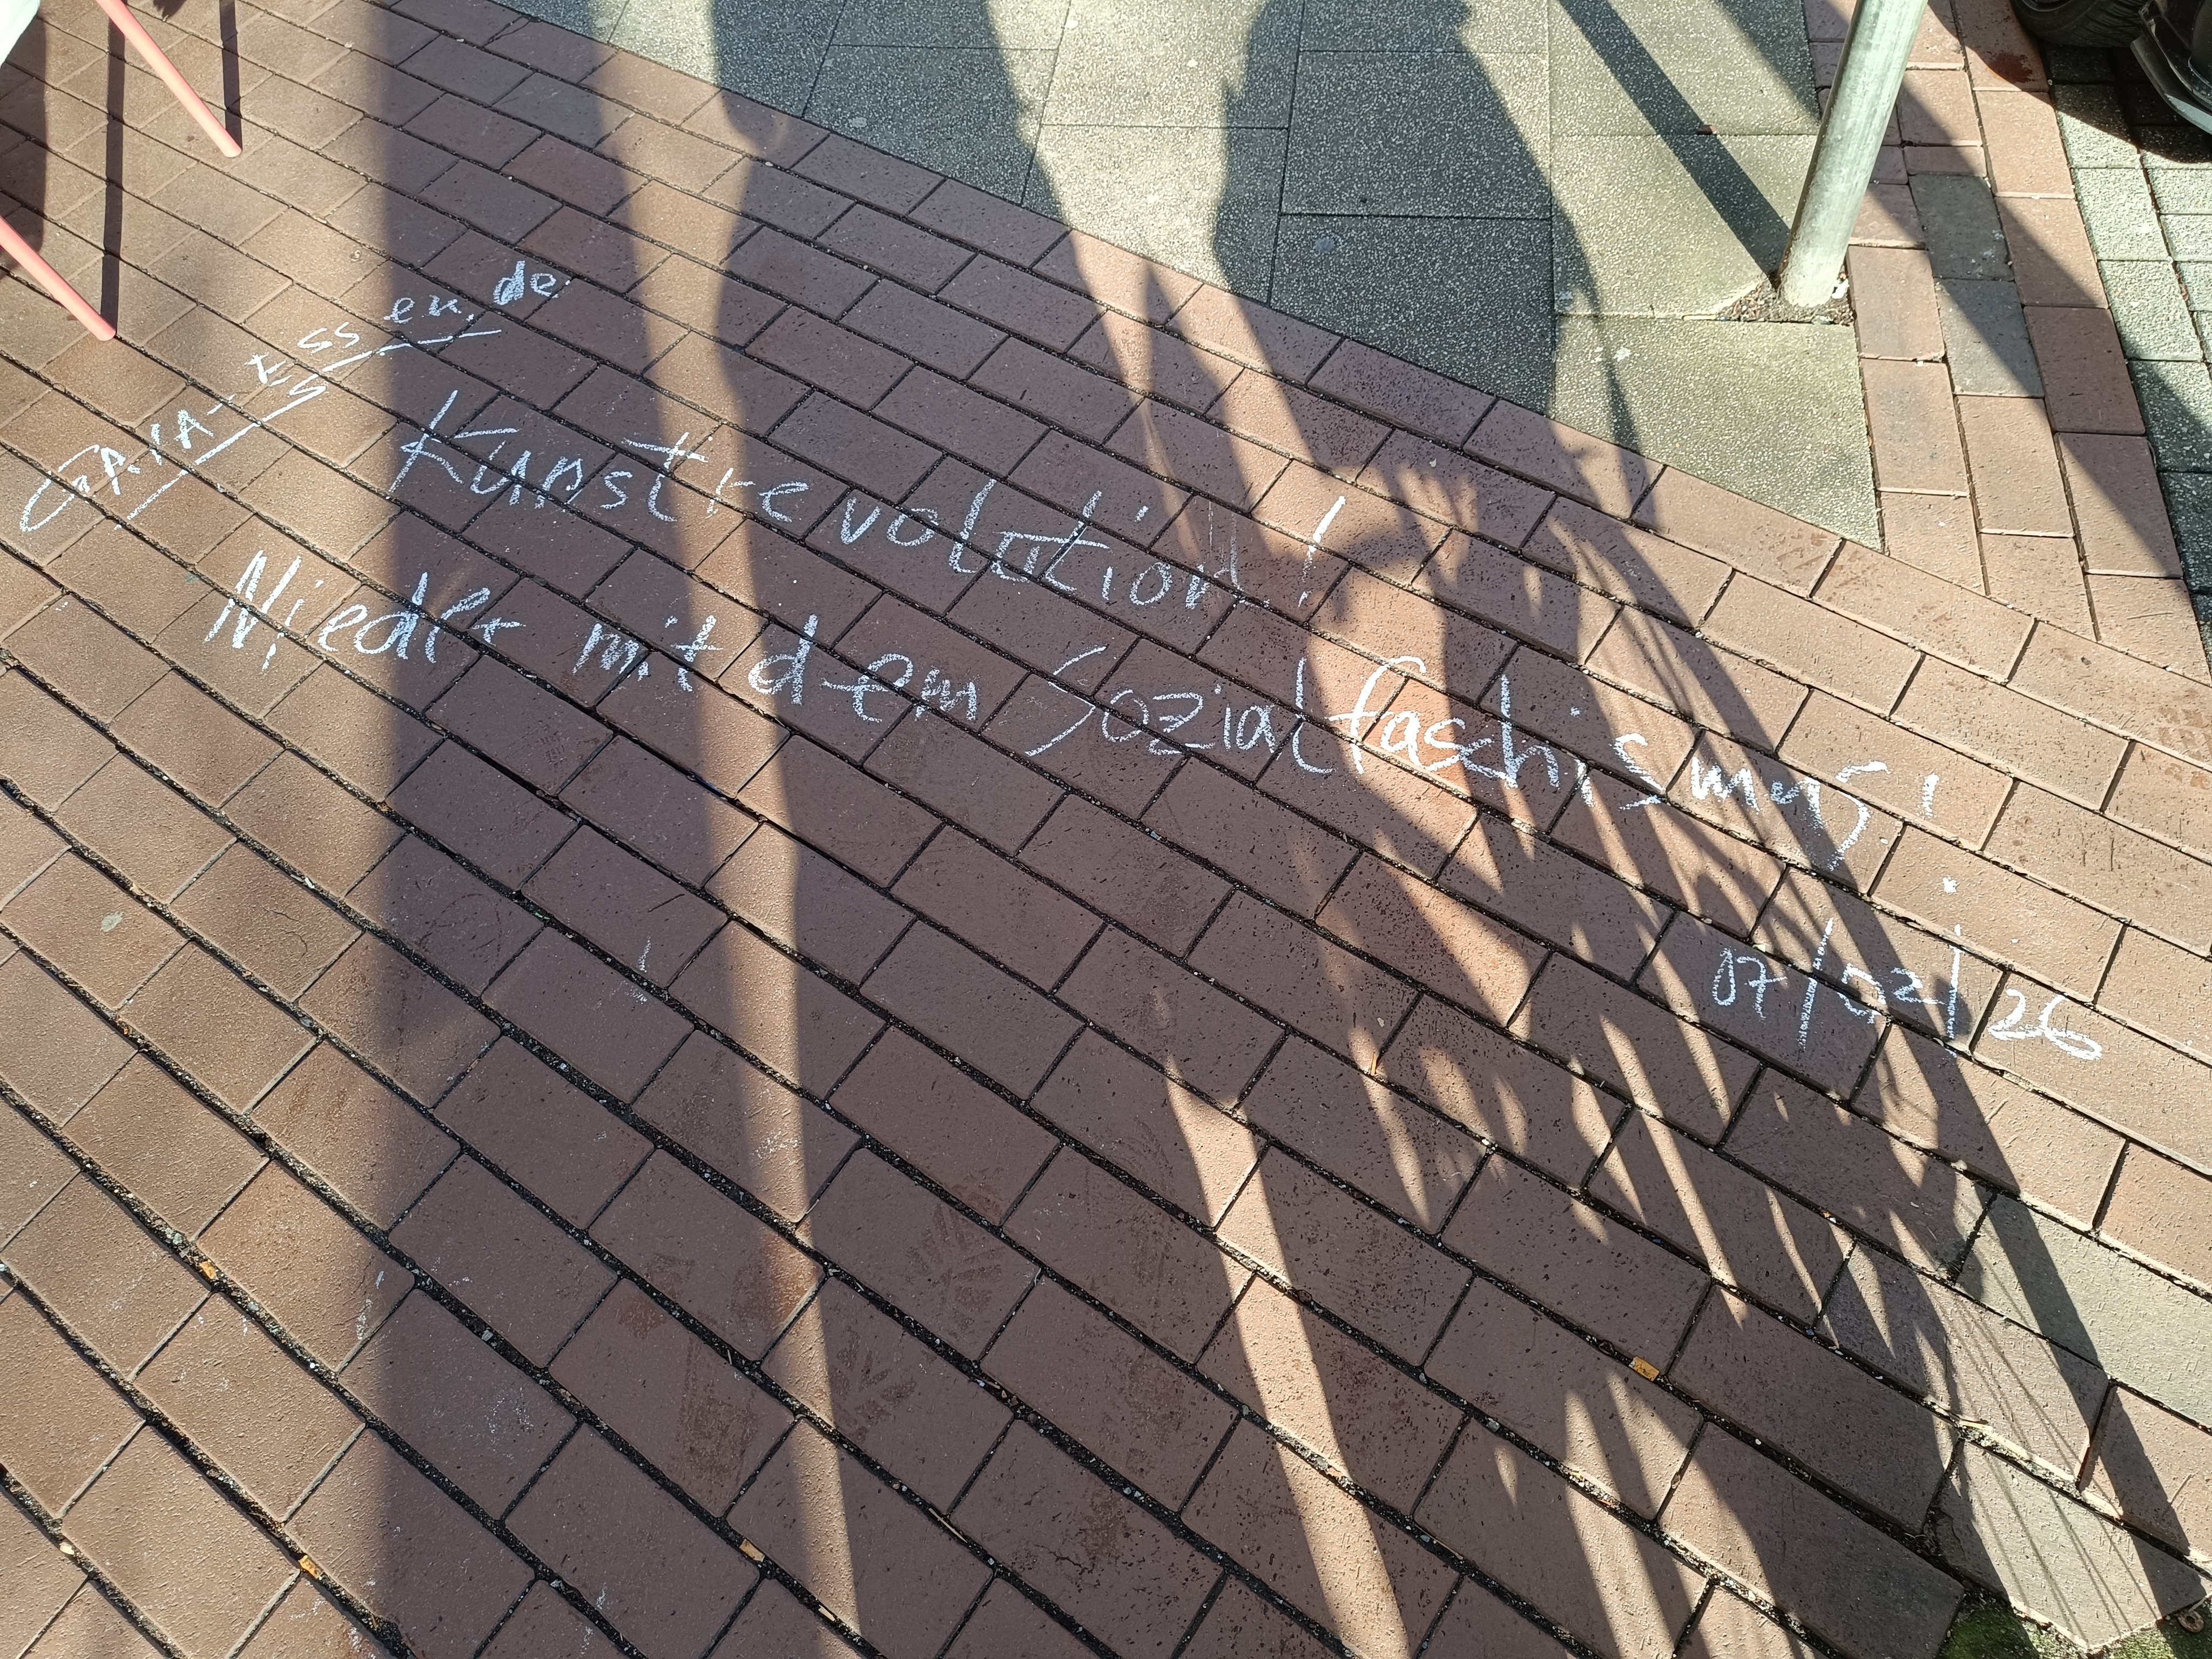 GAIA-Essen.de
Kunstrevolution!
Nieder mit dem Sozialfaschismus!
07/02/26